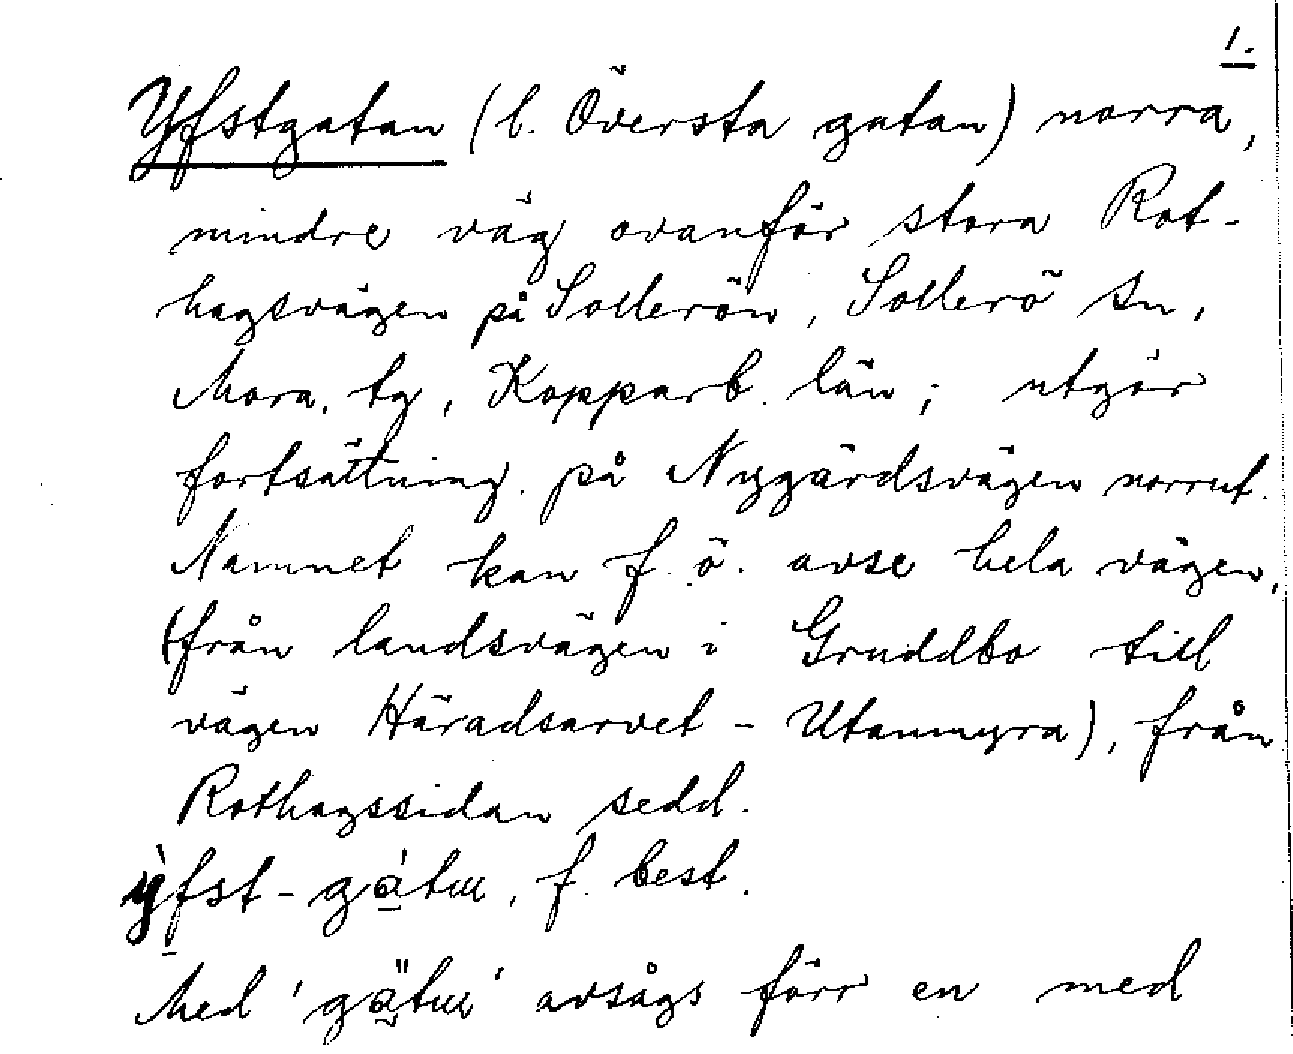 1.
Yfstgatan (l. Översta gatan) norra,
mindre väg ovanför stora Rot-
hagsvägen på Sollerön, Sollerö sn,
Mora tg, Kopparb. län; utgör
fortsättning på Nygårdsvägen norrut.
Namnet kan f. ö. avse hela vägen,
(från landsvägen i Gruddbo till
vägen Häradsarvet - Utanmyra), från
Rothagssidan sedd.
f. best.
Med avsågs förr en med